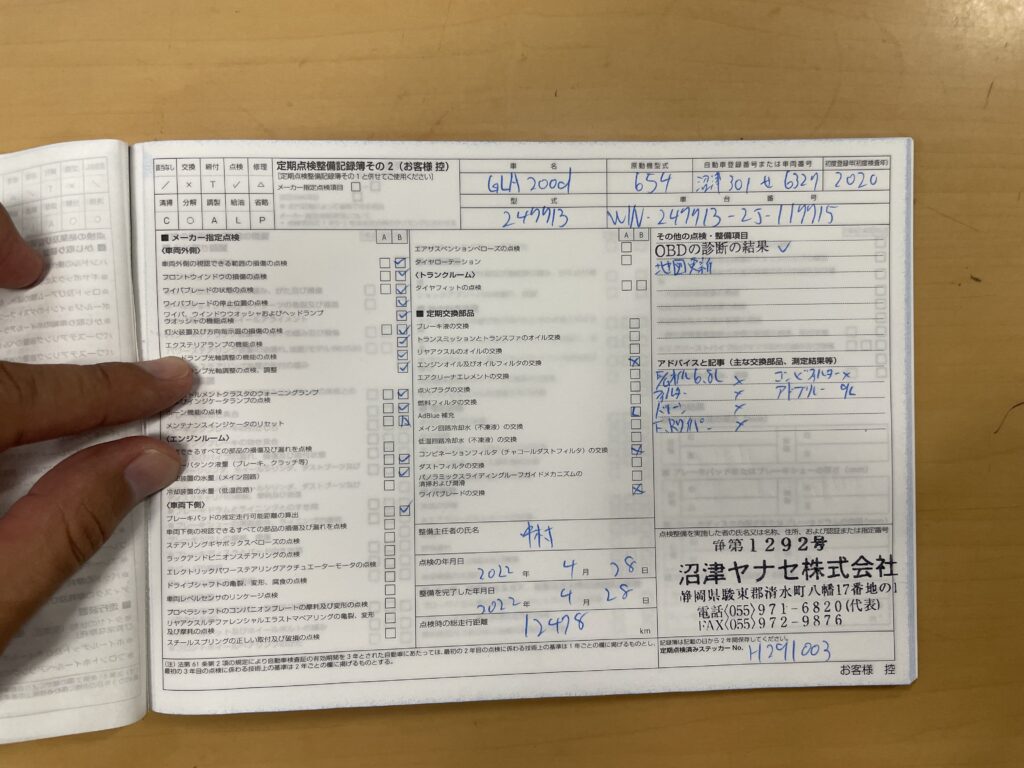 該当なし 交換 締付 点検 修理
／ × T ✓ △
清掃 分解 調整 給油 省略
C ○ A L P
定期点検整備記録簿その2（お客様 控）
[定期点検整備記録簿その1と併せてご使用ください]
メーカー指定点検項目
車 名 原動機型式 自動車登録番号または車両番号 初度登録年(初度検査年)
GLA 200d 654 沼津 301 せ 6327 2020
型 式 車 台 番 号
247713
■ メーカー指定点検 A B
〈車両外側〉
車両外側の視認できる範囲の損傷の点検
フロントウインドウの損傷の点検
ワイパブレードの状態の点検
ワイパブレードの停止位置の点検
ワイパ、ウインドウウオッシャおよびヘッドランプ
ウオッシャの機能点検
灯火装置及び方向指示器の損傷の点検
エクステリアランプの機能点検
ランプ光軸調整の機能点検
プ光軸調整の点検、調整
トルメントクラスタのウォーニングランプ
インジケータランプの点検
ホーン機能の点検
メンテナンスインジケータのリセット
〈エンジンルーム〉
できるすべての部品の損傷及び漏れを点検
ータンク液量（ブレーキ、クラッチ等）
装置の水量（メイン回路）
冷却装置の水量（低温回路）
〈車両下側〉
ブレーキパッドの推定走行可能距離の算出
車両下側の視認できるすべての部品の損傷及び漏れを点検
ステアリングギヤボックスベローズの点検
ラックアンドピニオンステアリングの点検
エレクトリックパワーステアリングアクチュエーターモータの点検
ドライブシャフトの亀裂、変形、腐食の点検
車両レベルセンサのリンケージ点検
プロペラシャフトのコンパニオンプレートの摩耗及び変形の点検
リヤアクスルデファレンシャルエラストマベアリングの亀裂、変形
及び摩耗の点検
スチールスプリングの正しい取付及び破損の点検
A B
エアサスペンションベローズの点検
タイヤローテーション
〈トランクルーム〉
タイヤフィットの点検
■ 定期交換部品
ブレーキ液の交換
トランスミッションとトランスファのオイル交換
リヤアクスルのオイルの交換
エンジンオイル及びオイルフィルタの交換
エアクリーナエレメントの交換
点火プラグの交換
燃料フィルタの交換
AdBlue 補充
メイン回路冷却水（不凍液）の交換
低温回路冷却水（不凍液）の交換
コンビネーションフィルタ（チャコールダストフィルタ）の交換
ダストフィルタの交換
パノラミックスライディングルーフガイドメカニズムの
清掃および潤滑
ワイパブレードの交換
整備主任者の氏名
中村
点検の年月日
2022 年 4 月 28 日
整備を完了した年月日
2022 年 4 月 28 日
点検時の総走行距離
12478 km
その他の点検・整備項目
OBDの診断の結果 ✓
地図更新
アドバイスと記事（主な交換部品、測定結果等）
点検整備を実施した者の氏名又は名称、住所、および認証または指定番号
第1292号
沼津ヤナセ株式会社
静岡県駿東郡清水町八幡17番地の1
電話〈055〉971-6820(代表)
FAX〈055〉972-9876
記録簿は記載の日から2年間保存してください。
定期点検済みステッカー No. H291003
(注) 法第 61 条第 2 項の規定により自動車検査証の有効期間を 3 年とされた自動車にあたっては、最初の 2 年目の点検に係わる技術上の基準は 1 年ごとの欄に掲げるものとし、
最初の 3 年目の点検に係わる技術上の基準は 2 年ごとの欄に掲げるものとする。
お客様 控